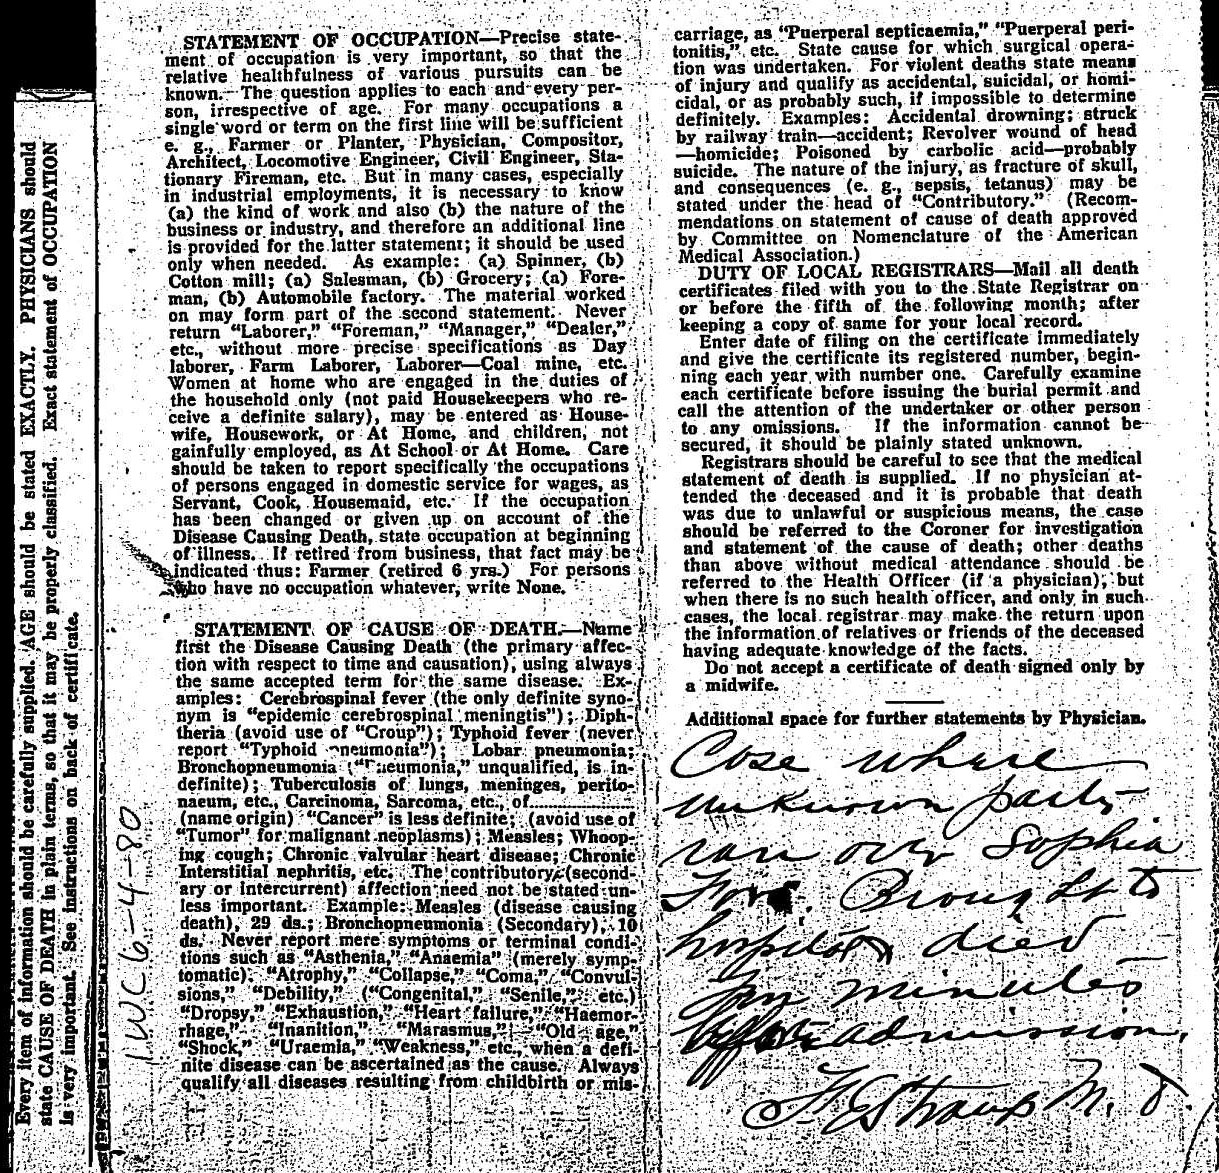 Every item of information should be carefully supplied. AGE should be stated EXACTLY. PHYSICIANS should
state CAUSE OF DEATH in plain terms, so that it may be properly classified. Exact statement of OCCUPATION
is very important. See instructions on back of certificate.
1WC6-4-80
STATEMENT OF OCCUPATION—Precise state-
ment of occupation is very important, so that the
relative healthfulness of various pursuits can be
known. The question applies to each and every per-
son, irrespective of age. For many occupations a
single word or term on the first line will be sufficient
e. g., Farmer or Planter, Physician, Compositor,
Architect, Locomotive Engineer, Civil Engineer, Sta-
tionary Fireman, etc. But in many cases, especially
in industrial employments, it is necessary to know
(a) the kind of work and also (b) the nature of the
business or industry, and therefore an additional line
is provided for the latter statement; it should be used
only when needed. As example: (a) Spinner, (b)
Cotton mill; (a) Salesman, (b) Grocery; (a) Fore-
man, (b) Automobile factory. The material worked
on may form part of the second statement. Never
return "Laborer," "Foreman," "Manager," "Dealer,"
etc., without more precise specifications as Day
laborer, Farm Laborer, Laborer—Coal mine, etc.
Women at home who are engaged in the duties of
the household only (not paid Housekeepers who re-
ceive a definite salary), may be entered as House-
wife, Housework, or At Home, and children, not
gainfully employed, as At School or At Home. Care
should be taken to report specifically the occupations
of persons engaged in domestic service for wages, as
Servant, Cook, Housemaid, etc. If the occupation
has been changed or given up on account of the
Disease Causing Death, state occupation at beginning
of illness. If retired from business, that fact may be
indicated thus: Farmer (retired 6 yrs.) For persons
who have no occupation whatever, write None.
STATEMENT OF CAUSE OF DEATH.—Name
first the Disease Causing Death (the primary affec-
tion with respect to time and causation), using always
the same accepted term for the same disease. Ex-
amples: Cerebrospinal fever (the only definite syno-
nym is "epidemic cerebrospinal meningtis"); Diph-
theria (avoid use of "Croup"); Typhoid fever (never
report "Typhoid pneumonia"); Lobar pneumonia;
Bronchopneumonia ("Pneumonia," unqualified, is in-
definite); Tuberculosis of lungs, meninges, perito-
naeum, etc., Carcinoma, Sarcoma, etc., of............
(name origin) "Cancer" is less definite; (avoid use of
"Tumor" for malignant neoplasms); Measles; Whoop-
ing cough; Chronic valvular heart disease; Chronic
Interstitial nephritis, etc. The contributory (second-
ary or intercurrent) affection need not be stated un-
less important. Example: Measles (disease causing
death), 29 ds.; Bronchopneumonia (Secondary), 10
ds. Never report mere symptoms or terminal condi-
tions such as "Asthenia," "Anaemia" (merely symp-
tomatic), "Atrophy," "Collapse," "Coma," "Convul-
sions," "Debility," ("Congenital," "Senile," etc.)
"Dropsy," "Exhaustion," "Heart failure," "Haemor-
rhage," "Inanition," "Marasmus," "Old age,"
"Shock," "Uraemia," "Weakness," etc., when a defi-
nite disease can be ascertained as the cause. Always
qualify all diseases resulting from childbirth or mis-
carriage, as "Puerperal septicaemia," "Puerperal peri-
tonitis," etc. State cause for which surgical opera-
tion was undertaken. For violent deaths state means
of injury and qualify as accidental, suicidal, or homi-
cidal, or as probably such, if impossible to determine
definitely. Examples: Accidental drowning; struck
by railway train—accident; Revolver wound of head
—homicide; Poisoned by carbolic acid—probably
suicide. The nature of the injury, as fracture of skull,
and consequences (e. g., sepsis, tetanus) may be
stated under the head of "Contributory." (Recom-
mendations on statement of cause of death approved
by Committee on Nomenclature of the American
Medical Association.)
DUTY OF LOCAL REGISTRARS—Mail all death
certificates filed with you to the State Registrar on
or before the fifth of the following month; after
keeping a copy of same for your local record.
Enter date of filing on the certificate immediately
and give the certificate its registered number, begin-
ning each year with number one. Carefully examine
each certificate before issuing the burial permit and
call the attention of the undertaker or other person
to any omissions. If the information cannot be
secured, it should be plainly stated unknown.
Registrars should be careful to see that the medical
statement of death is supplied. If no physician at-
tended the deceased and it is probable that death
was due to unlawful or suspicious means, the case
should be referred to the Coroner for investigation
and statement of the cause of death; other deaths
than above without medical attendance should be
referred to the Health Officer (if a physician), but
when there is no such health officer, and only in such
cases, the local registrar may make the return upon
the information of relatives or friends of the deceased
having adequate knowledge of the facts.
Do not accept a certificate of death signed only by
a midwife.
Additional space for further statements by Physician.
Case where
unknown party
ran over Sophia
Brought to
hospital died
minutes
admission.
Straup M. D.